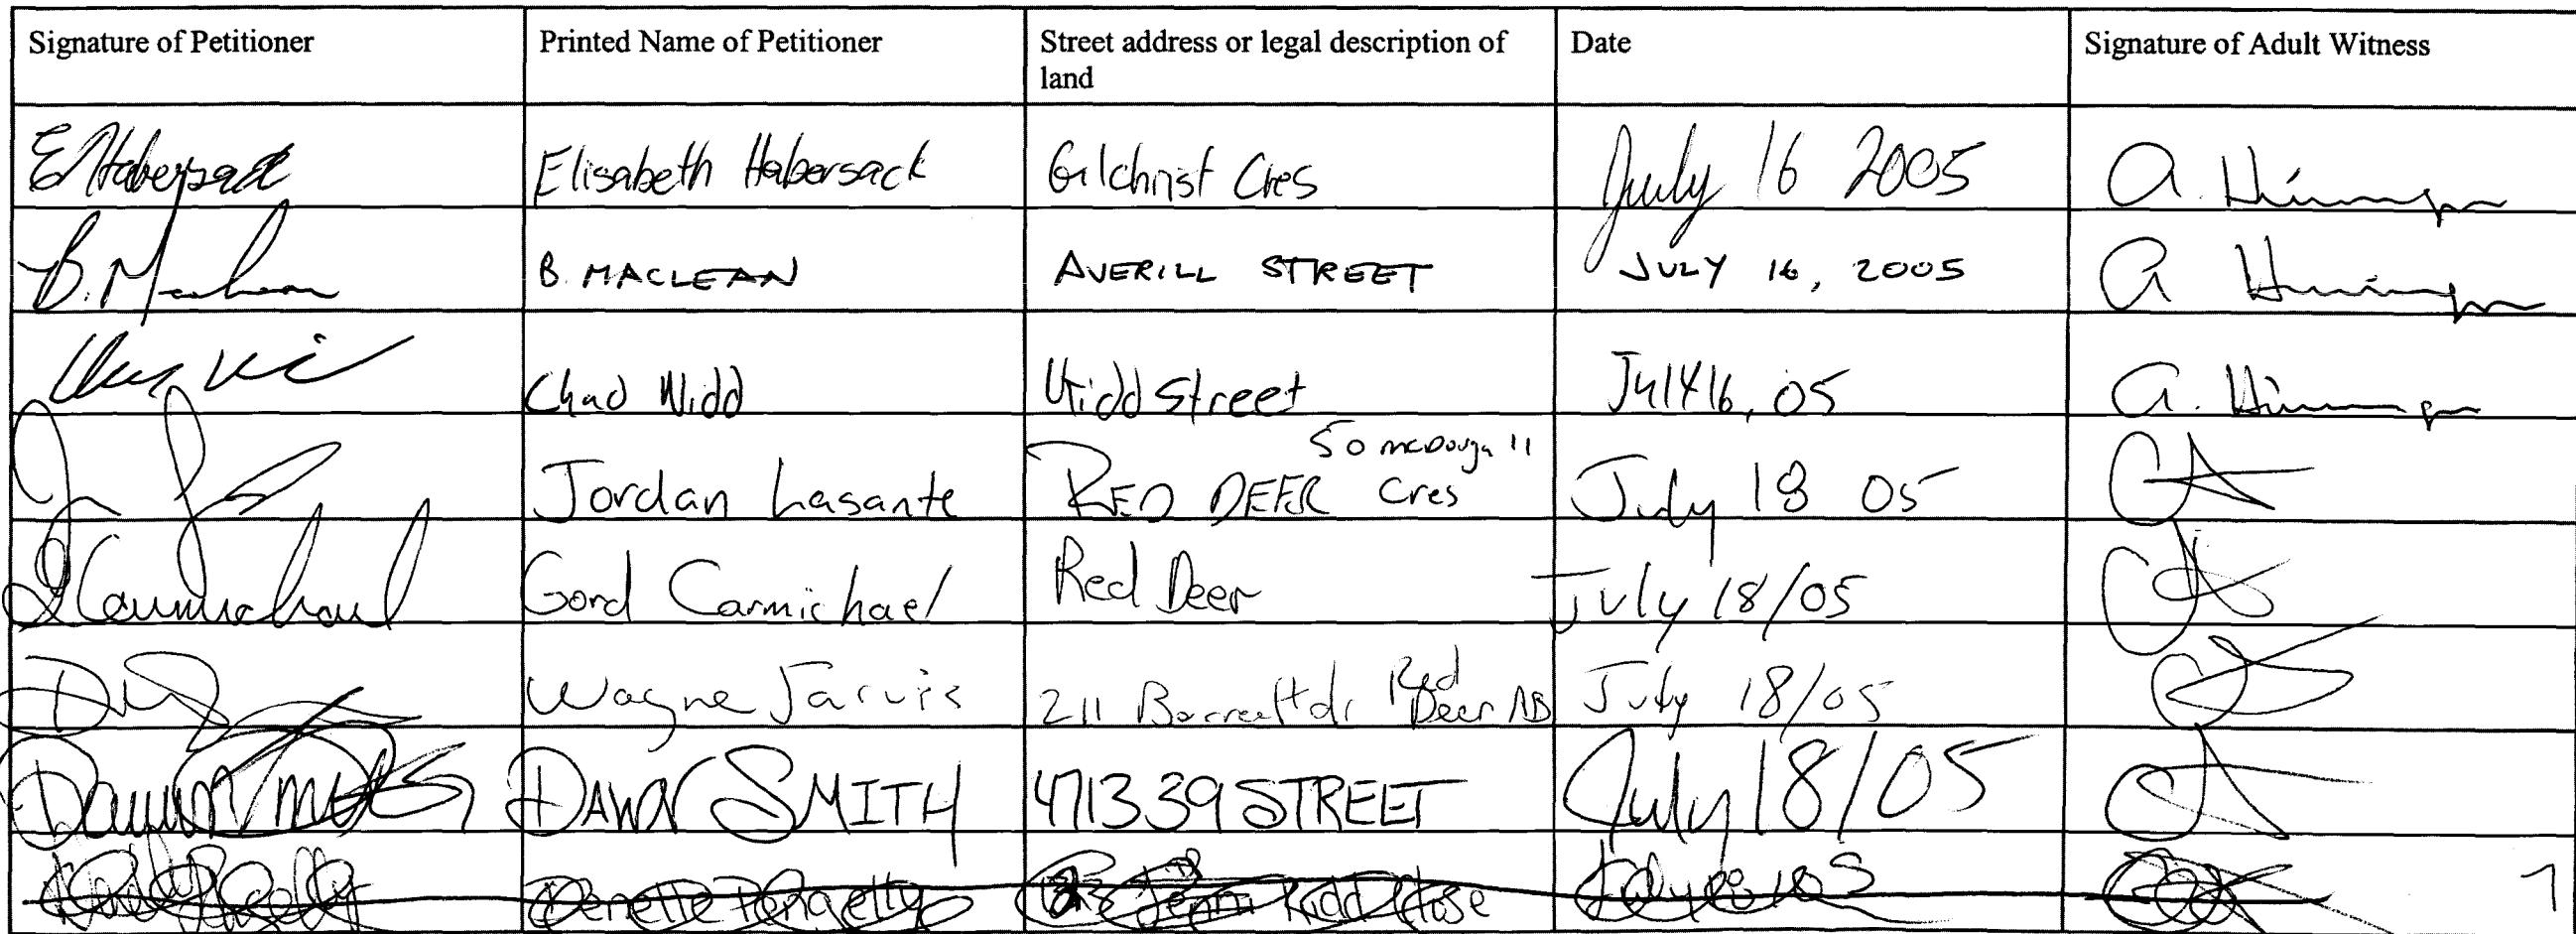 Signature of Petitioner Printed Name of Petitioner Street address or legal description of land Date Signature of Adult Witness
EHabersack Elisabeth Habersack Gilchrist Cres July 16 2005 a.
B. Maclean B. MACLEAN AVERILL STREET JULY 16, 2005 a
Chad Widd Street July 16, 05 a.
50 mcDougall
Jordan Lasante RED DEER Cres July 18 05
GCarmichael Gord Carmichael Red Deer July 18/05
Wayne Jarvis 211 Barrett dr Red Deer AB July 18/05
Dawn Smith DAWN SMITH 4713 39 STREET July 18/05
Kidd Close
1